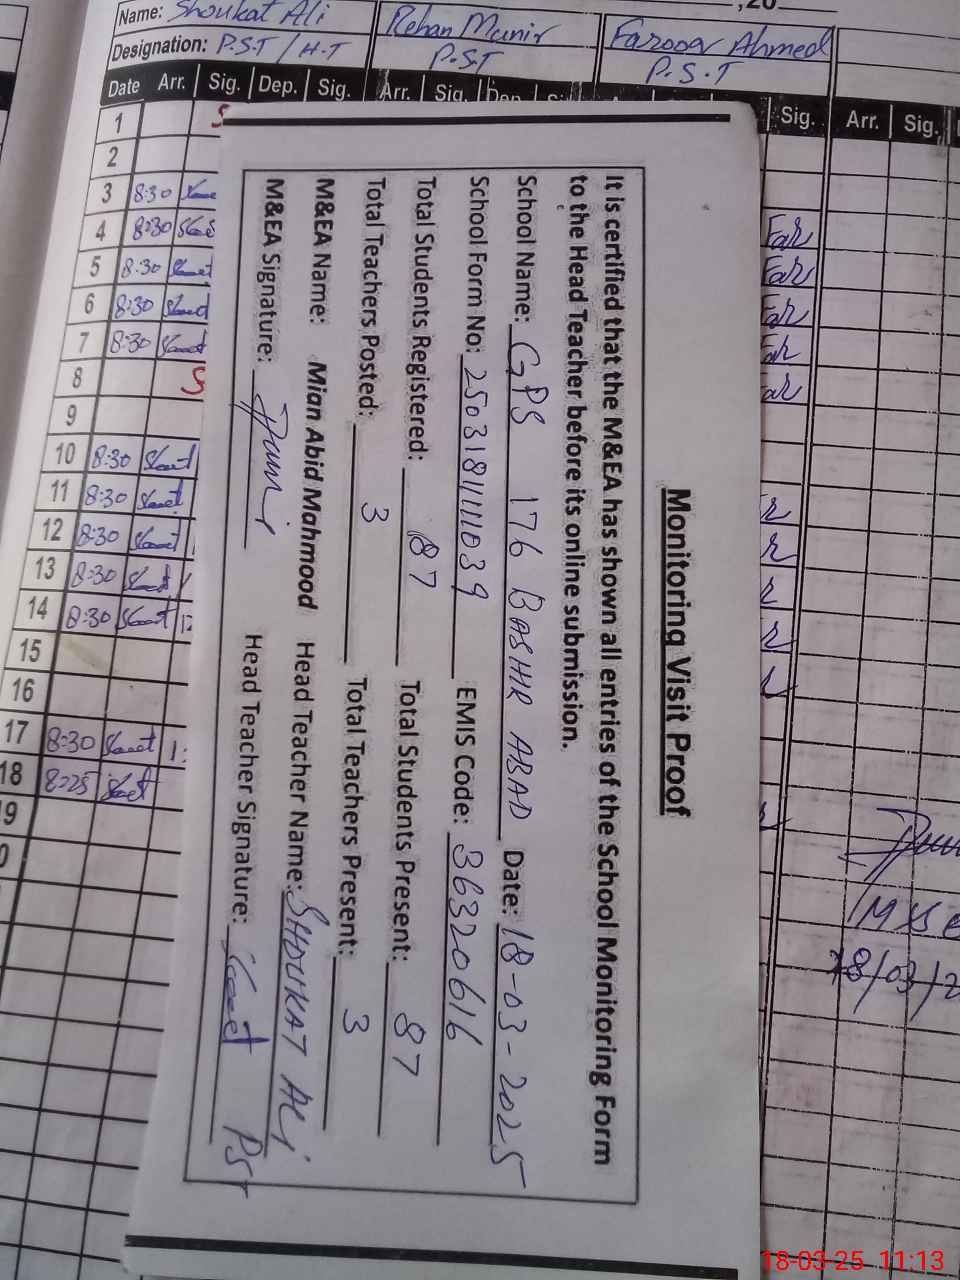 ,20
Name: Shoukat Ali
Rehan Munir
Farooq Ahmed
Designation: P.S.T / H.T
P.S.T
P.S.T
Date Arr. Sig. Dep. Sig. Arr. Sig. Dep. Sig. Arr. Sig.
1
2
3 8:30
4 8:30 Far
5 8:30 Far
6 8:30 Far
7 8:30
8
9
10 8:30
11 8:30
12 8:30
13 8:30
14 8:30
15
16
17 8:30
18 8:25
Monitoring Visit Proof
It is certified that the M&EA has shown all entries of the School Monitoring Form
to the Head Teacher before its online submission.
School Name: GPS 176 BASHIR ABAD Date: 18-03-2025
School Form No: EMIS Code: 36320616
Total Students Registered: 87 Total Students Present: 87
Total Teachers Posted: 3 Total Teachers Present: 3
M&EA Name: Mian Abid Mahmood Head Teacher Name: SHOUKAT ALI
M&EA Signature: Head Teacher Signature: PST
18/03/2
18-03-25 11:13